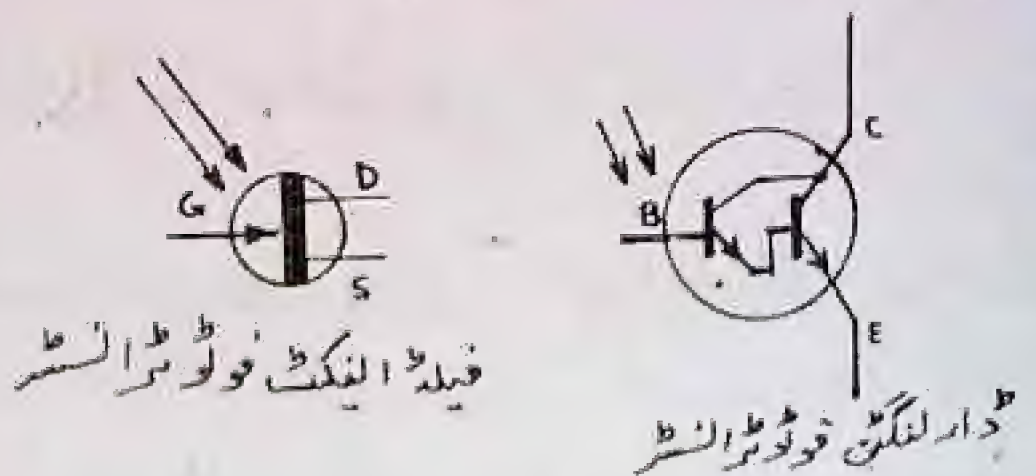 D
G
S
فیلڈ ایفکٹ فوٹو ٹرانسسٹر
C
B
E
ڈارلنگٹن فوٹو ٹرانسسٹر